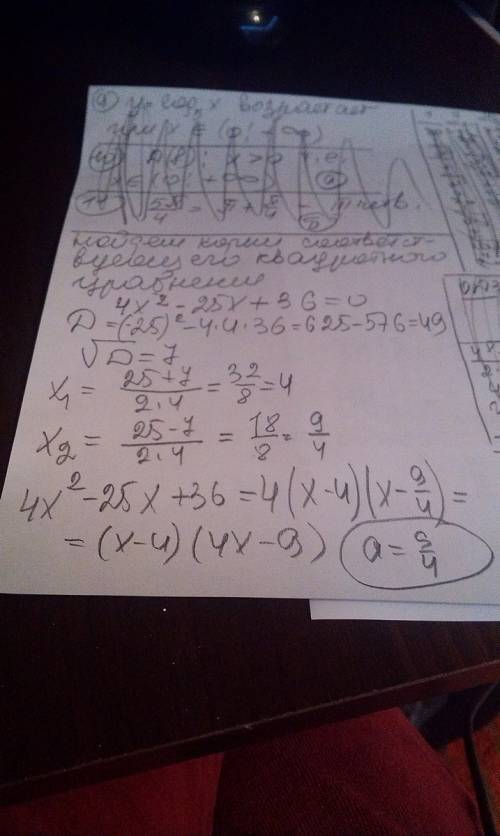 9) y = log₂ x возрастает
при x ∈ (0; +∞)
10) D(y): x > 0 т.е.
x ∈ (0; +∞)
11) 5π/4 = π + π/4 - III четв.
Найдем корни соответст-
вующего квадратного
уравнения
4x² - 25x + 36 = 0
D = (-25)² - 4·4·36 = 625 - 576 = 49
√D = 7
x₁ = (25+7)/(2·4) = 32/8 = 4
x₂ = (25-7)/(2·4) = 18/8 = 9/4
4x² - 25x + 36 = 4(x-4)(x - 9/4) =
= (x-4)(4x-9) a = 9/4